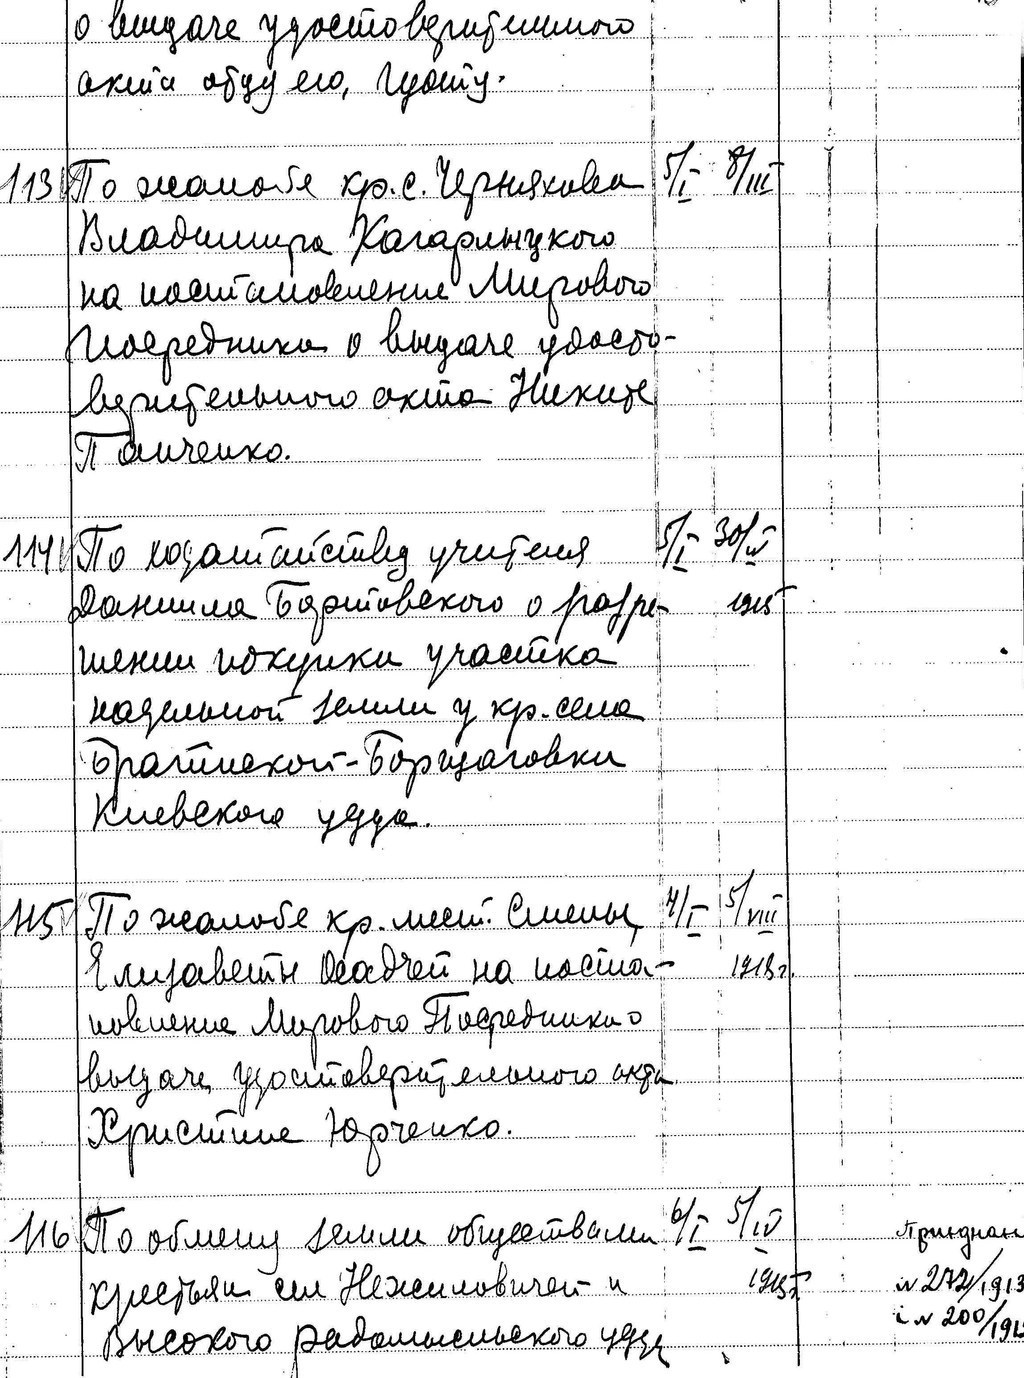 о выдаче удостоверительного
акта
113 По жалобе кр. с. Черняхова 5/I 8/III
Владимира Кагарлыцкого
на постановление Мирового
Посредника о выдаче удосто-
верительного акта Никите
Панченко.
114 По ходатайству учителя 5/I 30/IV
Даниила Бартовского о разре- 1915
шении покупки участка
надельной земли у кр. села
Братской-Борщаговки
Киевского уезда.
115 По жалобе кр. мест. Смелы, 4/I 5/VIII
Елизаветы Осадчей на поста- 1913 г.
новление Мирового Посредника о
выдаче удостоверительного акта
Христине Юрченко.
116 По обмену земли обществами 6/I 5/IV
крестьян сел Нежиловичей и 1913 г.
Высокого Радомысльского уезда
№ 272/1913
і № 200/191